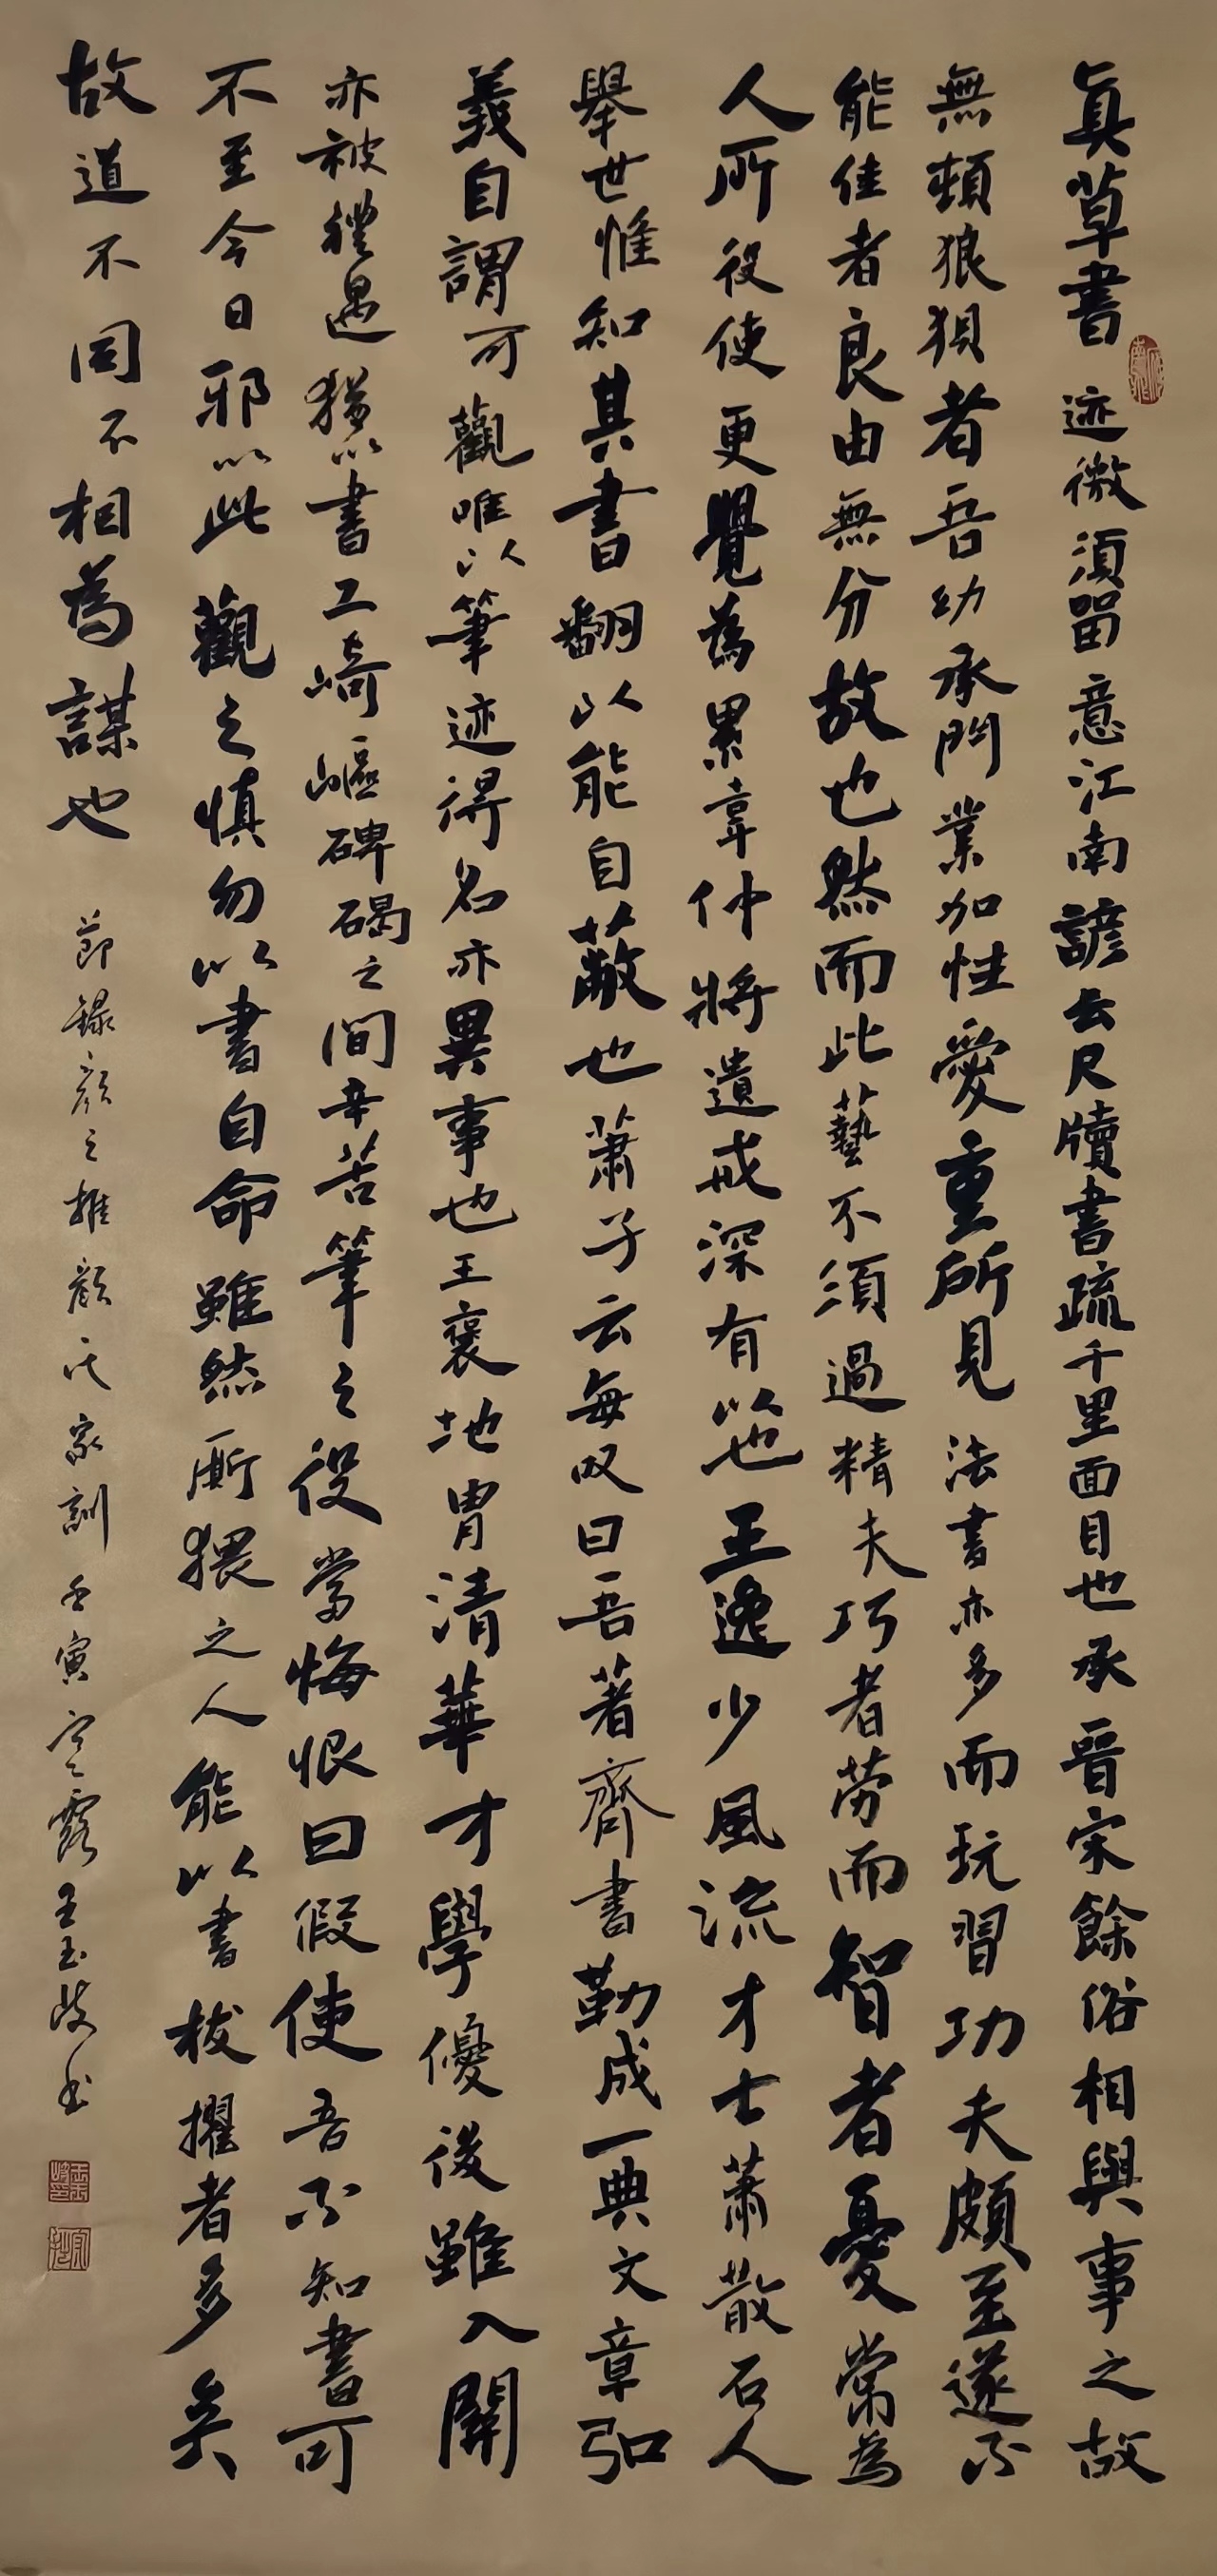 真草書迹微須留意江南諺云尺牘書疏千里面目也承晉宋餘俗相與事之故
無頓狼狽者吾幼承門業加性愛重所見法書亦多而玩習功夫頗至遂不
能佳者良由無分故也然而此藝不須過精夫巧者勞而智者憂常為
人所役使更覺為累韋仲將遺戒深有以也王逸少風流才士蕭散名人
舉世惟知其書翻以能自蔽也蕭子云每叹曰吾著齊書勒成一典文章弘
義自謂可觀唯以筆迹得名亦異事也王褒地胄清華才學優後雖入關
亦被禮遇猶以書工崎嶇碑碣之間辛苦筆之役嘗悔恨曰假使吾不知書可
不至今日邪以此觀之慎勿以書自命雖然廝猥之人能以書拔擢者多矣
故道不同不相為謀也
節錄顏之推顏氏家訓壬寅寒露王玉岐书